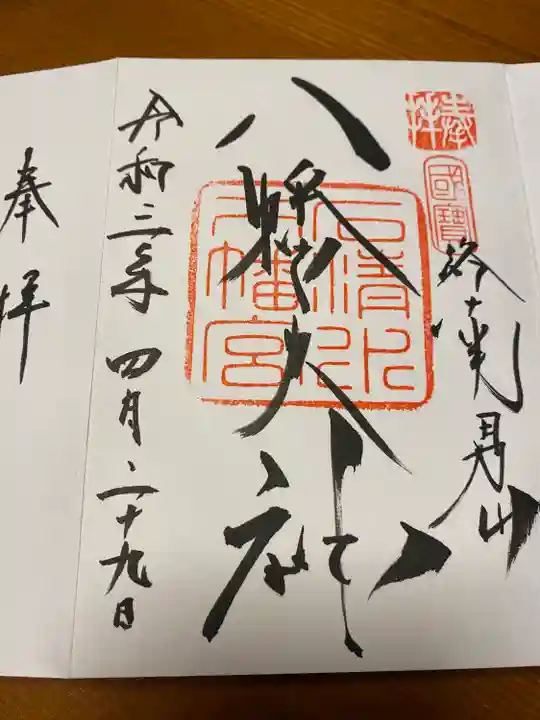 奉拝
國寶
洛南男山
八幡大社
石清水
八幡宮
令和三年四月二十九日
奉拝